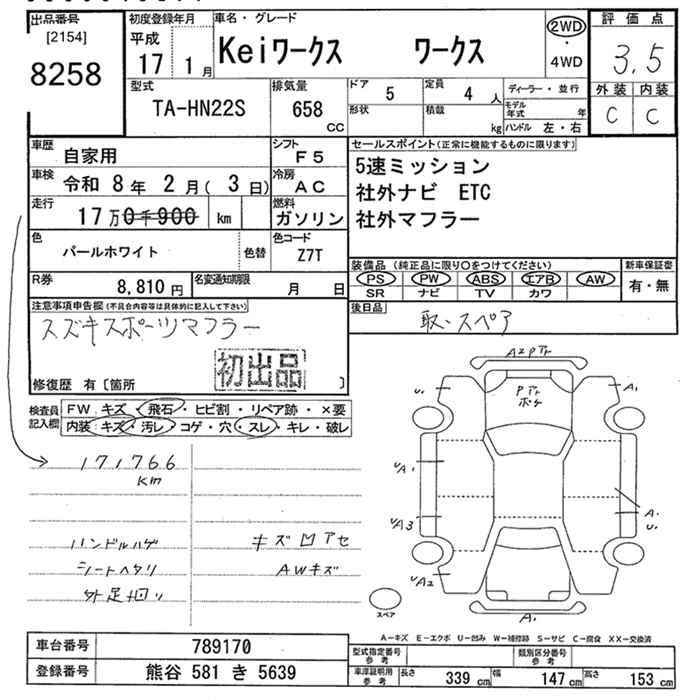 出品番号
[2154]
8258
初度登録年月
平成
17 1月
車名・グレード
Keiワークス ワークス
2WD
・
4WD
評価点
3.5
外装 内装
C C
型式
TA-HN22S
排気量
658
CC
ドア 5
形状
定員 4 人
積載 kg
ディーラー・並行
モデル年式 年
ハンドル 左・右
車歴 自家用
シフト F5
セールスポイント(正常に機能するものに限ります)
5速ミッション
社外ナビ ETC
社外マフラー
車検 令和 8年 2月( 3日)
冷房 AC
走行 17万0千900 km
燃料 ガソリン
色 パールホワイト 色替
色コード Z7T
装備品 (純正品に限り○をつけてください)
PS PW ABS エアB AW
SR ナビ TV カワ
新車保証書
有・無
R券 8,810円
名変通知期限 月 日
後日品
取、スペア
注意事項申告欄(不具合内容等は具体的に記入して下さい)
スズキスポーツマフラー
初出品
修復歴 有〔箇所 〕
検査員記入欄
FW キズ・飛石・ヒビ割・リペア跡・×要
内装 キズ・汚レ・コゲ・穴・スレ・キレ・破レ
171766
km
ハンドルハゲ キズ凹アセ
シートヘタリ AWキズ
外足廻り
A2PTr
PTr
ボケ
U1 A1
UA1
UA3
A1
U1
UA2
A1
スペア
A－キズ E－エクボ U－凹み W－補修跡 S－サビ C－腐食 XX－交換済
車台番号 789170
型式指定番号 参考
類別区分番号 参考
登録番号 熊谷 581 き 5639
車庫証明用 参考
長さ 339 cm 幅 147 cm 高さ 153 cm